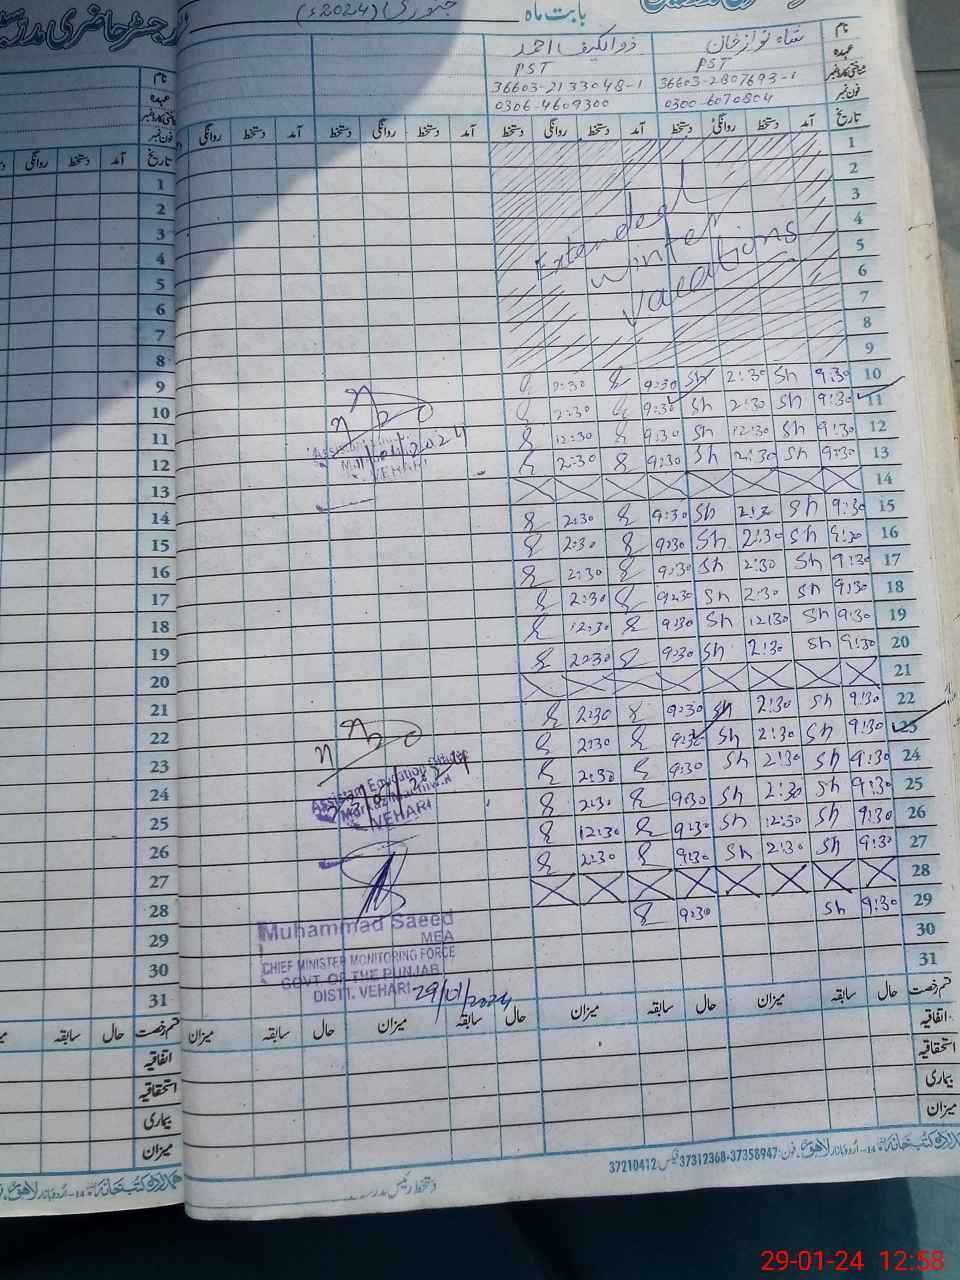 رجسٹر حاضری مدرسین
بابت ماہ جنوری (2024ء)
نام شاہ نواز خان ذوالکیف احمد
عہدہ PST PST
شناختی کارڈ نمبر 36603-2807693-1 36603-2133048-1
فون نمبر 0300-6070804 0306-4609300
تاریخ آمد دستخط روانگی دستخط آمد دستخط روانگی دستخط آمد دستخط روانگی دستخط آمد دستخط روانگی
1
2
3
4
5
6
7
8
9
Extended
winter
vacations
10 9:30 Sh 2:30 Sh 9:30 2:30
11 9:30 Sh 2:30 Sh 9:30 2:30
12 9:30 Sh 12:30 Sh 9:30 12:30
13 9:30 Sh 2:30 Sh 9:30 2:30
14
15 9:30 Sh 2:30 Sh 9:30 2:30
16 9:30 Sh 2:30 Sh 9:30 2:30
17 9:30 Sh 2:30 Sh 9:30 2:30
18 9:30 Sh 2:30 Sh 9:30 2:30
19 9:30 Sh 12:30 Sh 9:30 12:30
20 9:30 Sh 2:30 Sh 9:30 2:30
21
22 9:30 Sh 2:30 Sh 9:30 2:30
23 9:30 Sh 2:30 Sh 9:30 2:30
24 9:30 Sh 2:30 Sh 9:30 2:30
25 9:30 Sh 2:30 Sh 9:30 2:30
26 9:30 Sh 12:30 Sh 9:30 12:30
27 9:30 Sh 2:30 Sh 9:30 2:30
28
29 9:30 Sh 9:30
30
31
VEHARI
Assistant Education Officer
VEHARI
Muhammad Saeed
MEA
CHIEF MINISTER MONITORING FORCE
GOVT. OF THE PUNJAB
DISTT. VEHARI
29/01/2024
قسم رخصت حال سابقہ میزان حال سابقہ میزان حال سابقہ میزان
اتفاقیہ
استحقاقیہ
بیماری
میزان
ہمدرد کتب خانہ 14-اردو بازار لاہور۔ فون: 37358947-37312368 فیکس: 37210412
دستخط رئیس مدرسہ
نام
عہدہ
شناختی کارڈ نمبر
فون نمبر
تاریخ آمد دستخط روانگی
1
2
3
4
5
6
7
8
9
10
11
12
13
14
15
16
17
18
19
20
21
22
23
24
25
26
27
28
29
30
31
قسم رخصت حال سابقہ
اتفاقیہ
استحقاقیہ
بیماری
میزان
ہمدرد کتب خانہ 14-اردو بازار لاہور
29-01-24 12:58